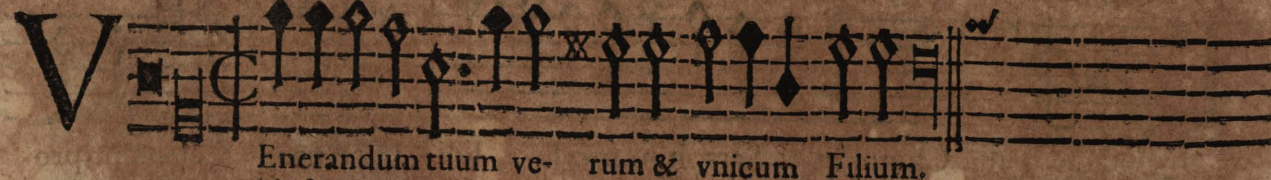 VEnerandum tuum ve- rum & vnicum Filium.